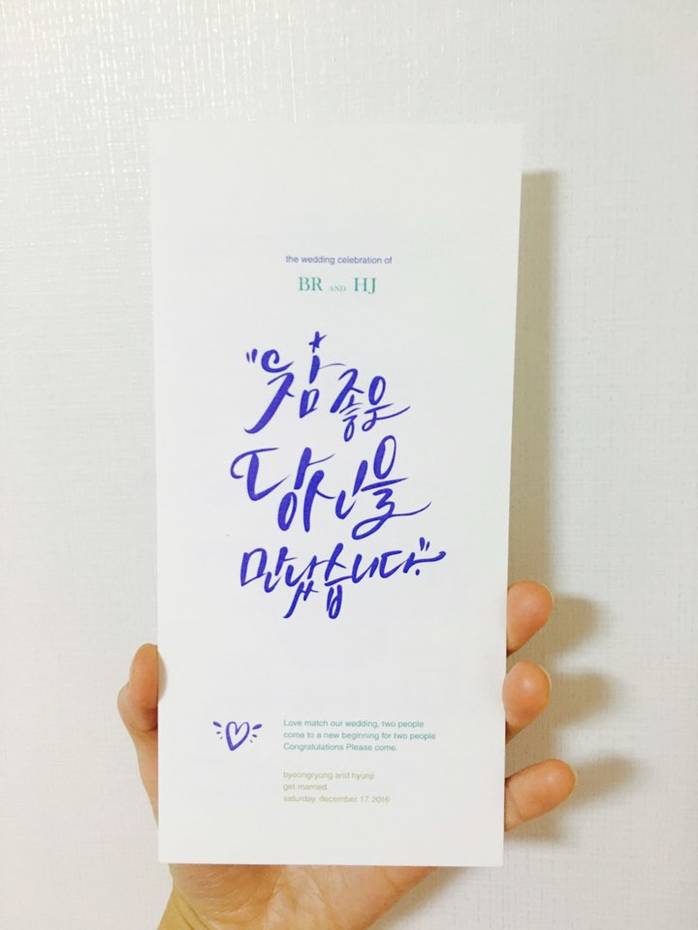 the wedding celebration of
BR AND HJ
"참 좋은
당신을
만났습니다."
Love match our wedding, two people
come to a new beginning for two people
Congratulations Please come.
byeongryong and hyunji
get married.
saturday, december 17, 2016